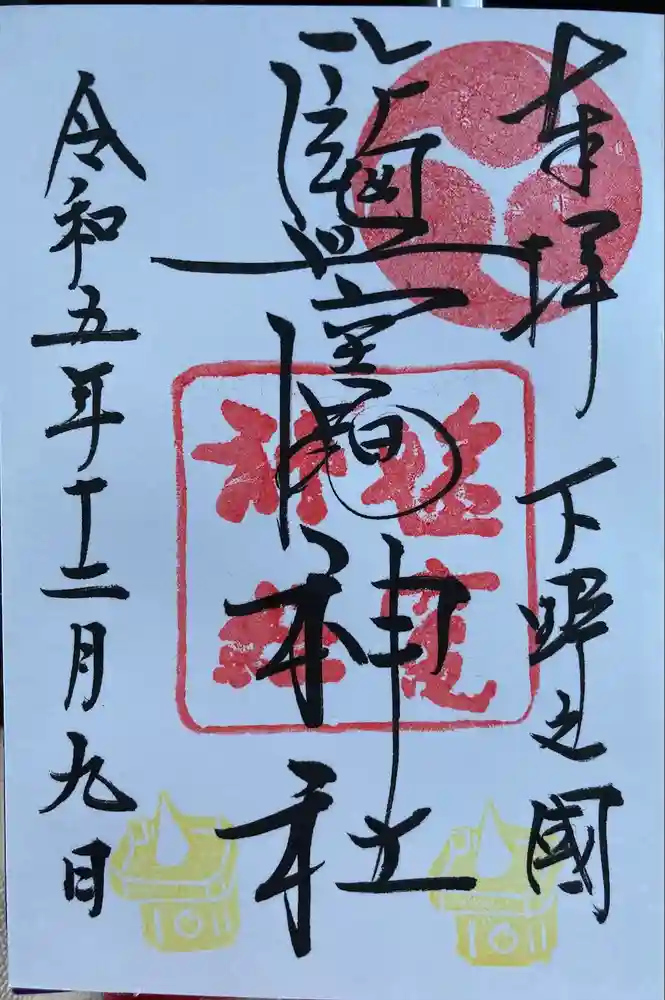 奉拝 下野之國
鹽竈神社
塩竈
神社
令和五年十二月九日